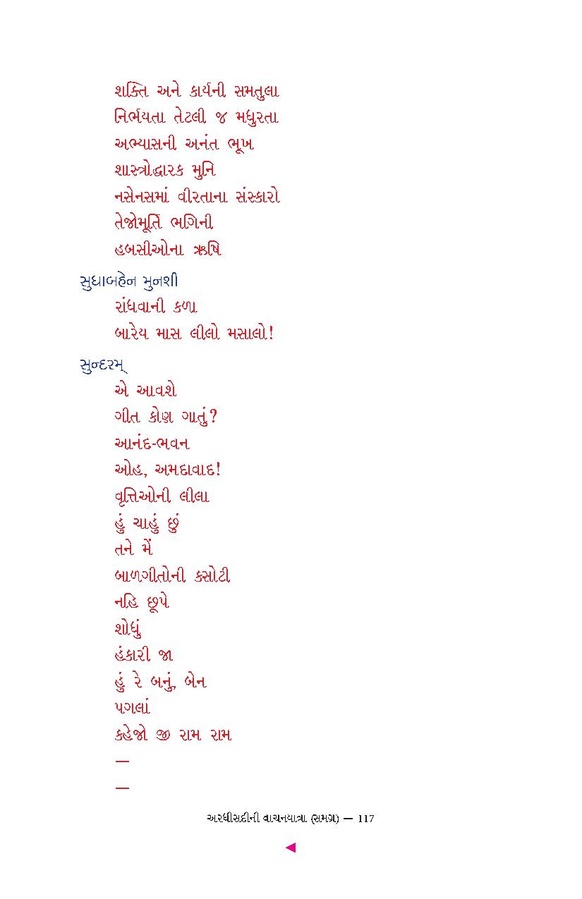 શક્તિ અને કાર્યની સમતુલા
નિર્ભયતા તેટલી જ મધુરતા
અભ્યાસની અનંત ભૂખ
શાસ્ત્રોદ્ધારક મુનિ
નસેનસમાં વીરતાના સંસ્કારો
તેજોમૂર્તિ ભગિની
હબસીઓના ઋષિ
સુધાબહેન મુનશી
રાંધવાની કળા
બારેય માસ લીલો મસાલો!
સુન્દરમ્
એ આવશે
ગીત કોણ ગાતું?
આનંદ-ભવન
ઓહ, અમદાવાદ!
વૃત્તિઓની લીલા
હું ચાહું છું
તને મેં
બાળગીતોની કસોટી
નહિ છૂપે
શોધું
હંકારી જા
હું રે બનું, બેન
પગલાં
કહેજો જી રામ રામ
—
—
અરધીસદીની વાચનયાત્રા (સમગ્ર) — 117